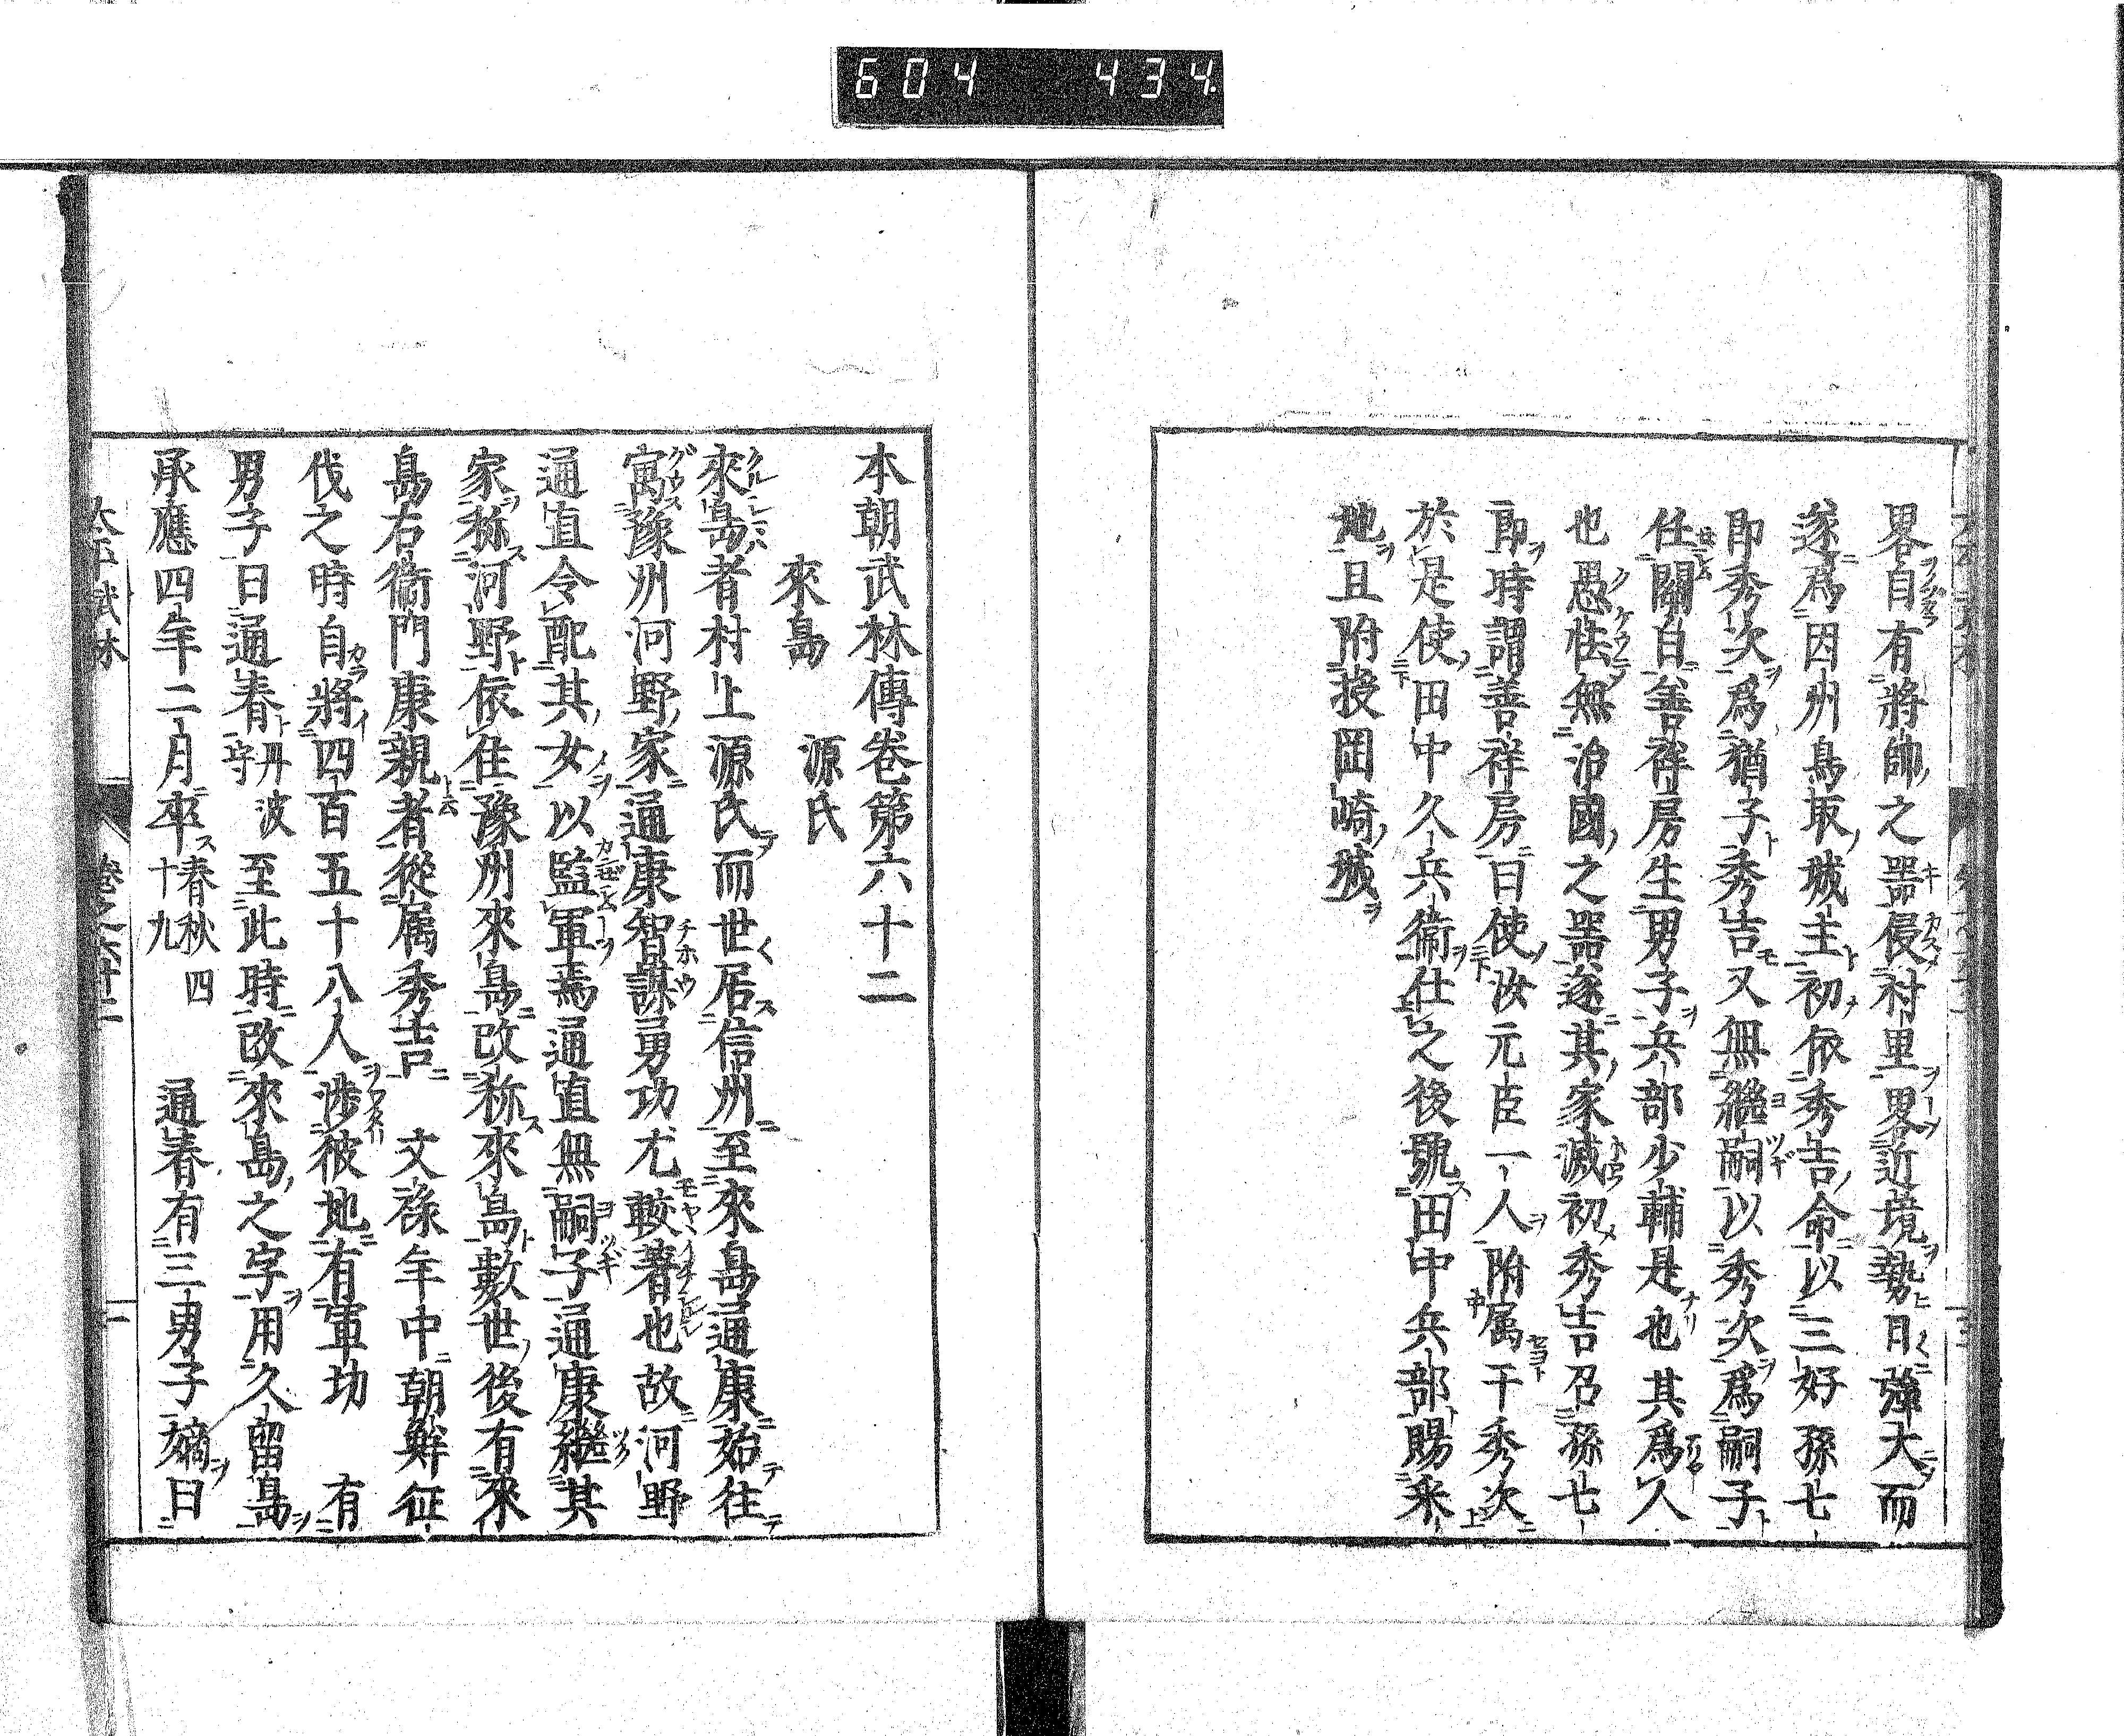 604 434
畧自有將帥之器侵村里畧近境勢日強大而
遂爲因州鳥取城主初依秀吉命以三好孫七
即秀次爲猶子秀吉又無繼嗣以秀次爲嗣子
任關白善祥房生男子兵部少輔是也其爲人
也愚怯無治國之器遂其家滅初秀吉召孫七
即時謂善祥房曰使汝元臣一人附属于秀次
於是使田中久兵衞仕之後號田中兵部賜釆
地且附授岡崎城
本朝武林傳卷第六十二
來島 源氏
來島者村上源氏而世居信州至來島通康始往
寓豫州河野家通康智謀勇功尤較著也故河野
通直令配其女以監軍焉通直無嗣子通康繼其
家称河野依住豫州來島改称來島數世後有來
島右衞門康親者從属秀吉 文祿年中朝鮮征
伐之時自將四百五十八人渉彼地有軍功 有
男子曰通春丹波守至此時改來島之字用久留島
承應四年二月卒春秋四十九 通春有三男子嫡曰
本朝武林 卷之六十二 一